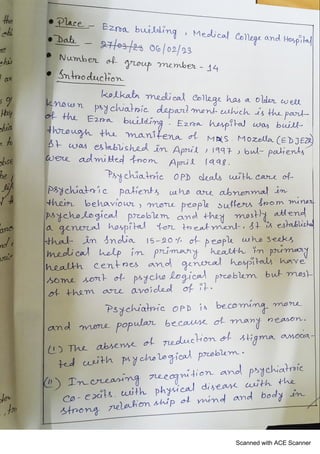 • Place - Ezra building, Medical College and Hospital
• Date - 27/03/23 06/02/23
• Number of group member - 14
• Introduction
Kolkata medical College has a older well
known psychiatric department which is the part
of the Ezra building. Ezra hospital was built
through the of MRS Mozella (EDJEZRA)
It was established in April, 1997, but patients
were admitted from April 1998.
Psychiatric OPD deals with care of
psychiatric patients who are abnormal in
their behaviour, more people suffers from minor
psychological problem and they mostly attend
a general hospital for treatment. It is established
that in India 15-20% of people who seeks
medical help in primary health in primary
health centres and general hospitals have
some sort of psychological problem but most
of them are avoided of it.
Psychiatric OPD is becoming more
and more popular because of many reason.
(I) The absense of reduction of stigma associa-
ted with psychological problem.
(II) Increasing recognition and psychiatric
co-exits with physical disease with the
strong relation ship of mind and body in
Scanned with ACE Scanner